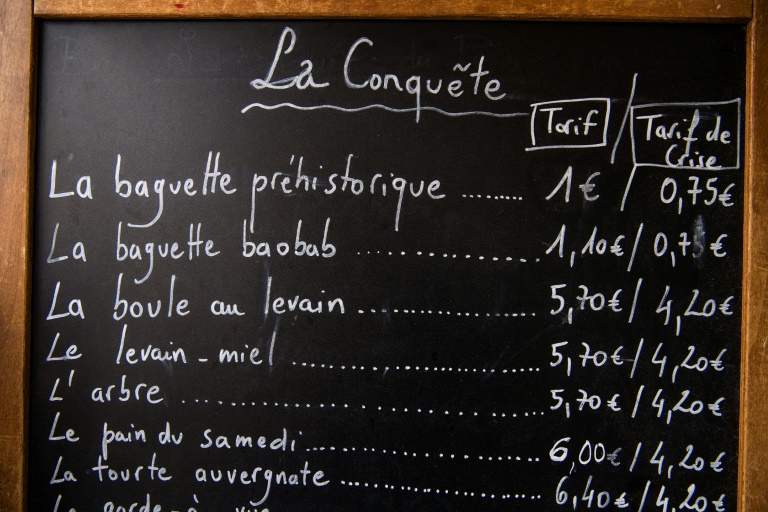 La Conquête
Tarif / Tarif de Crise
La baguette préhistorique ........ 1€ / 0,75€
La baguette baobab .................. 1,10€ / 0,75€
La boule au levain .................. 5,70€ / 4,20€
Le levain-miel .......................... 5,70€ / 4,20€
L'arbre .................................... 5,70€ / 4,20€
Le pain du samedi .................... 6,00€ / 4,20€
La tourte auvergnate ................ 6,40€ / 4,20€